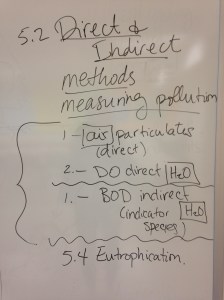 5.2 Direct &
Indirect
methods
measuring pollution
1.- air particulates
(direct)
2.- DO direct H2O
1.- BOD indirect
(indicator H2O
Species)
5.4 Eutrophication.